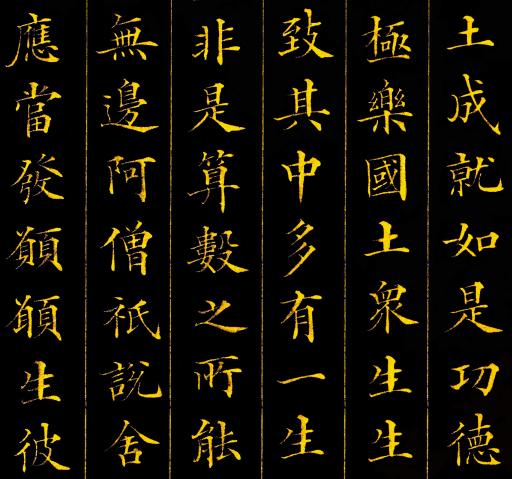 土成就如是功德
極樂國土衆生生
致其中多有一生
非是算數之所能
無邊阿僧祇説舍
應當發願願生彼